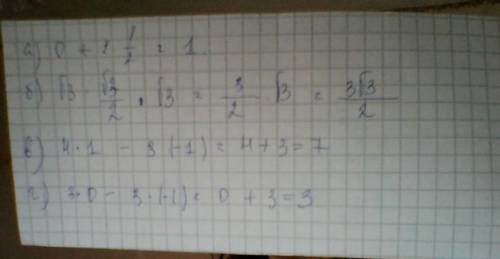 а) 0 + 2 1/2 = 1
б) √3 √3/2 · √3 = 3/2 · √3 = 3√3/2
в) 4·1 - 3 (-1) = 4+3=7
г) 3·0 - 3·(-1) = 0 + 3 = 3